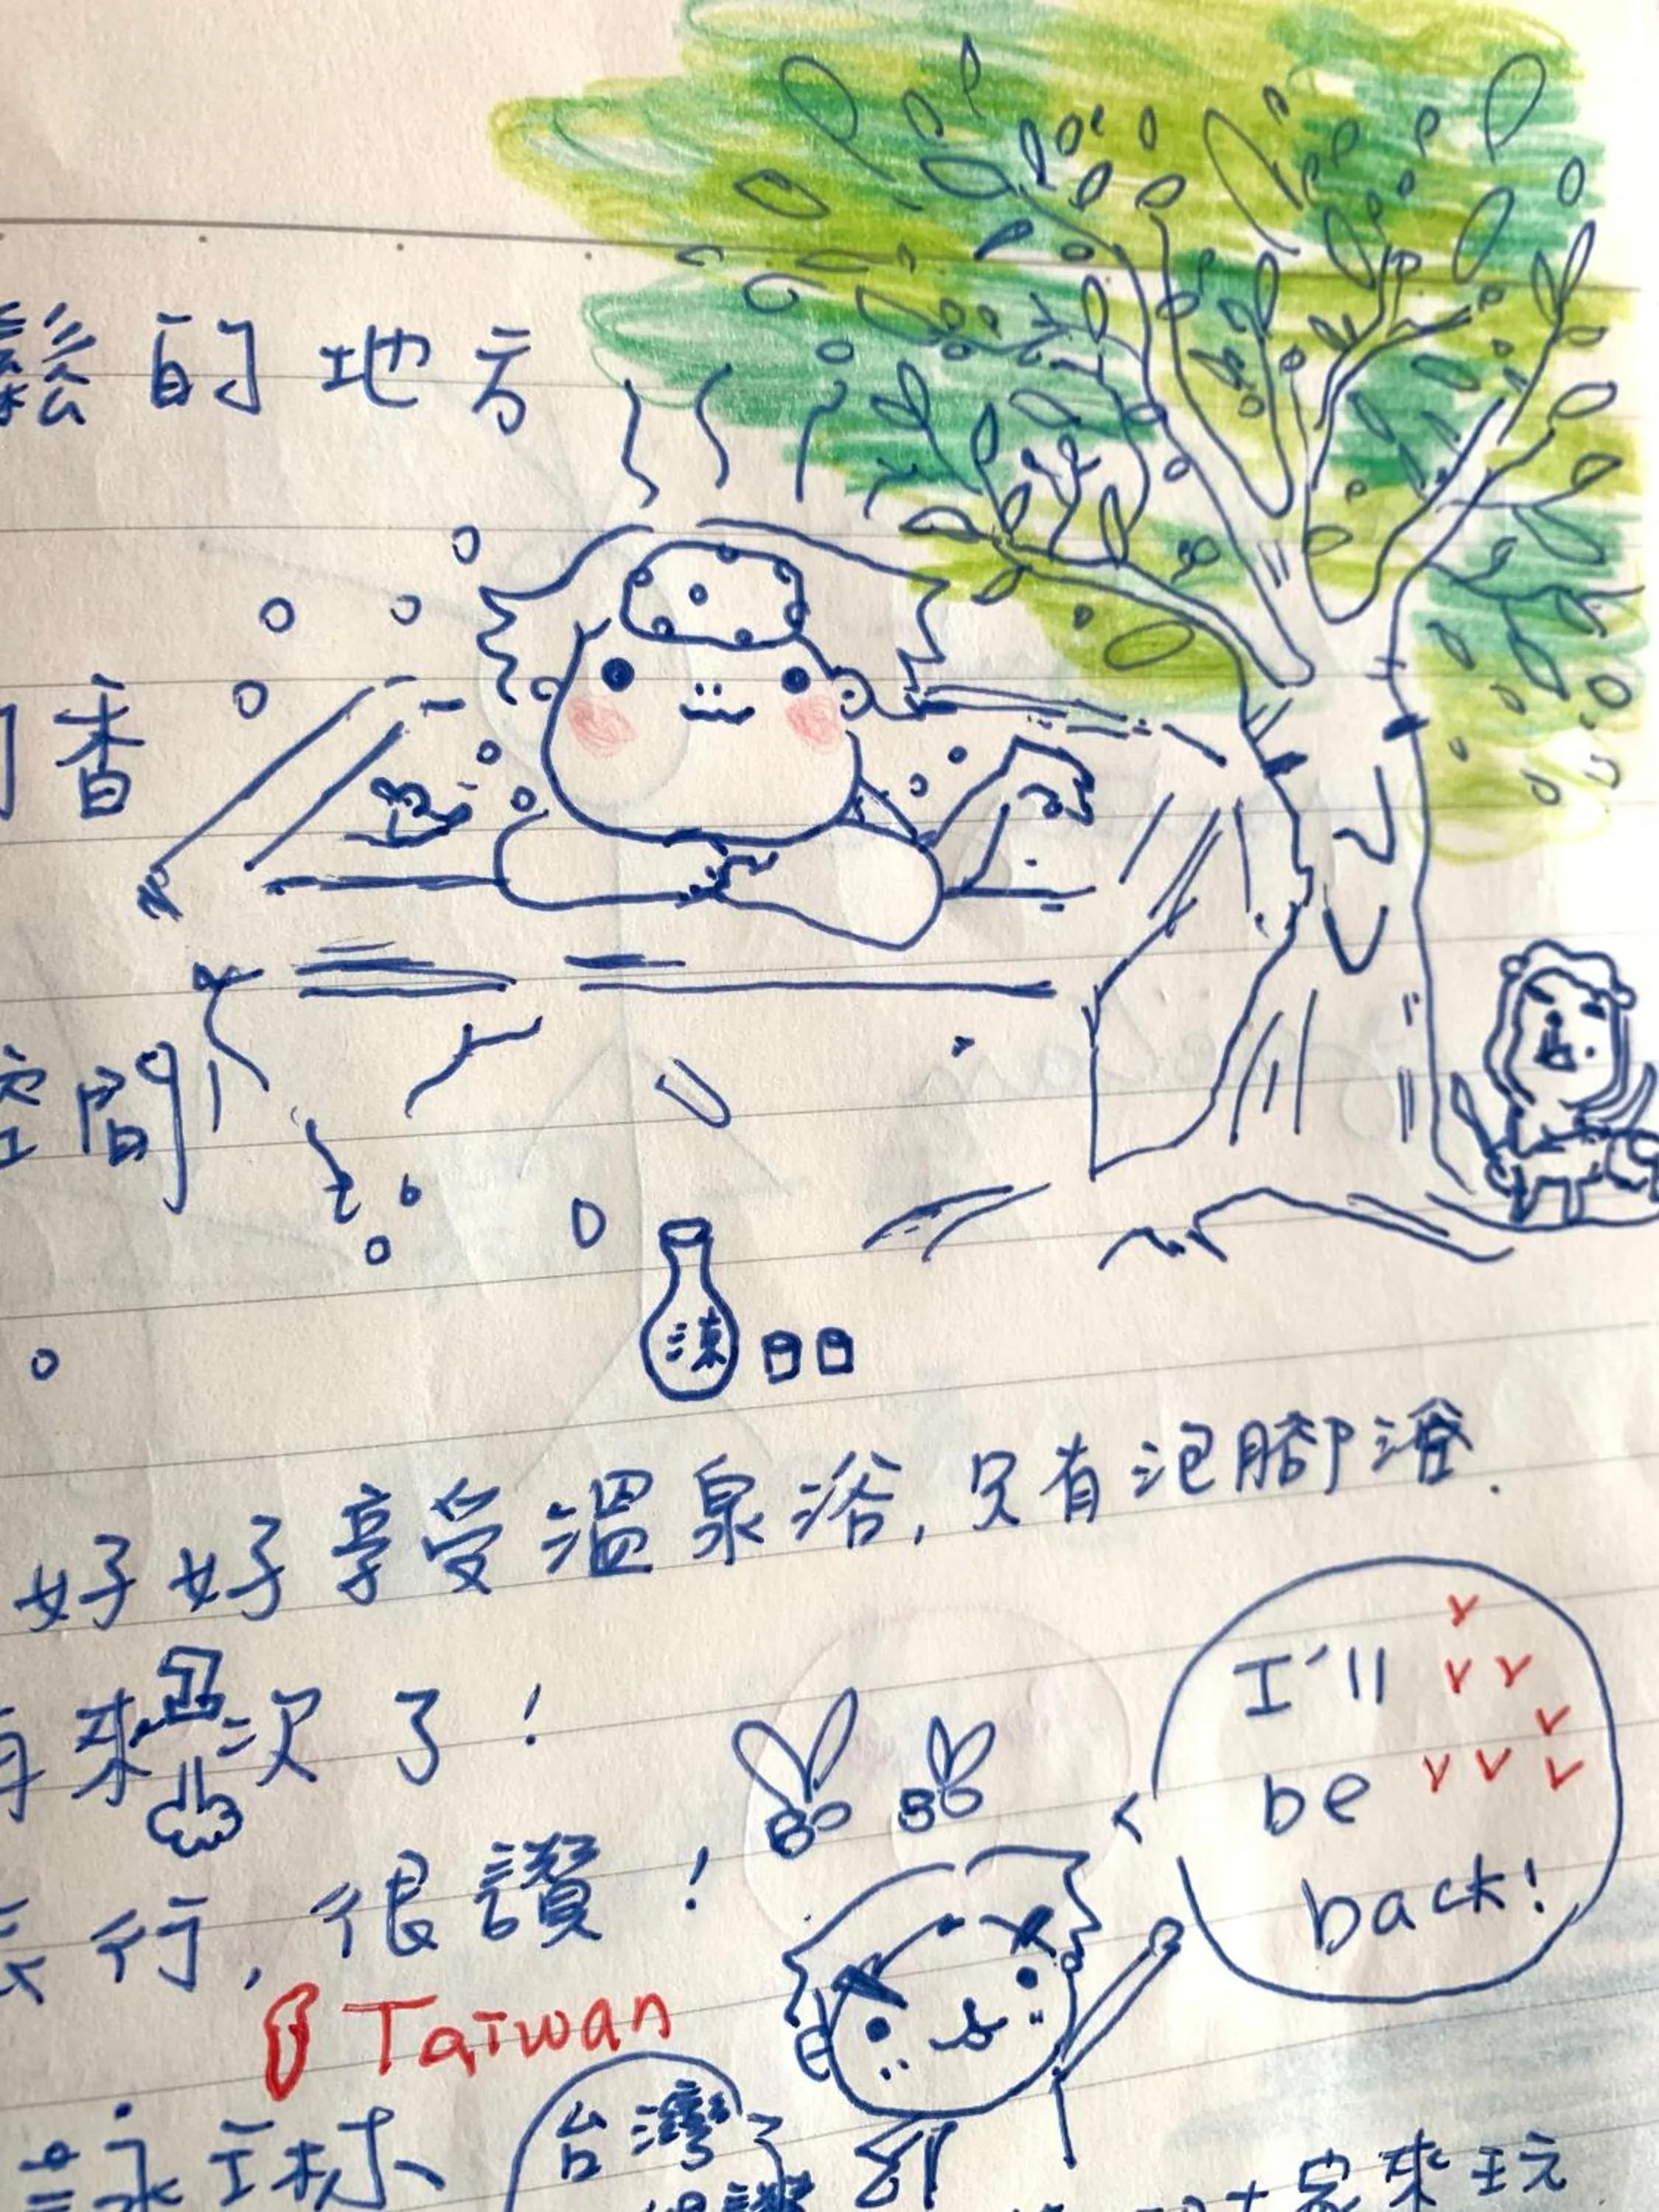 鬆的地方
香
空間
涷
好好享受溫泉浴,只有泡腳浴.
再來 次了!
I'll
be
back!
行,很讚!
Taiwan
台灣
大家來玩